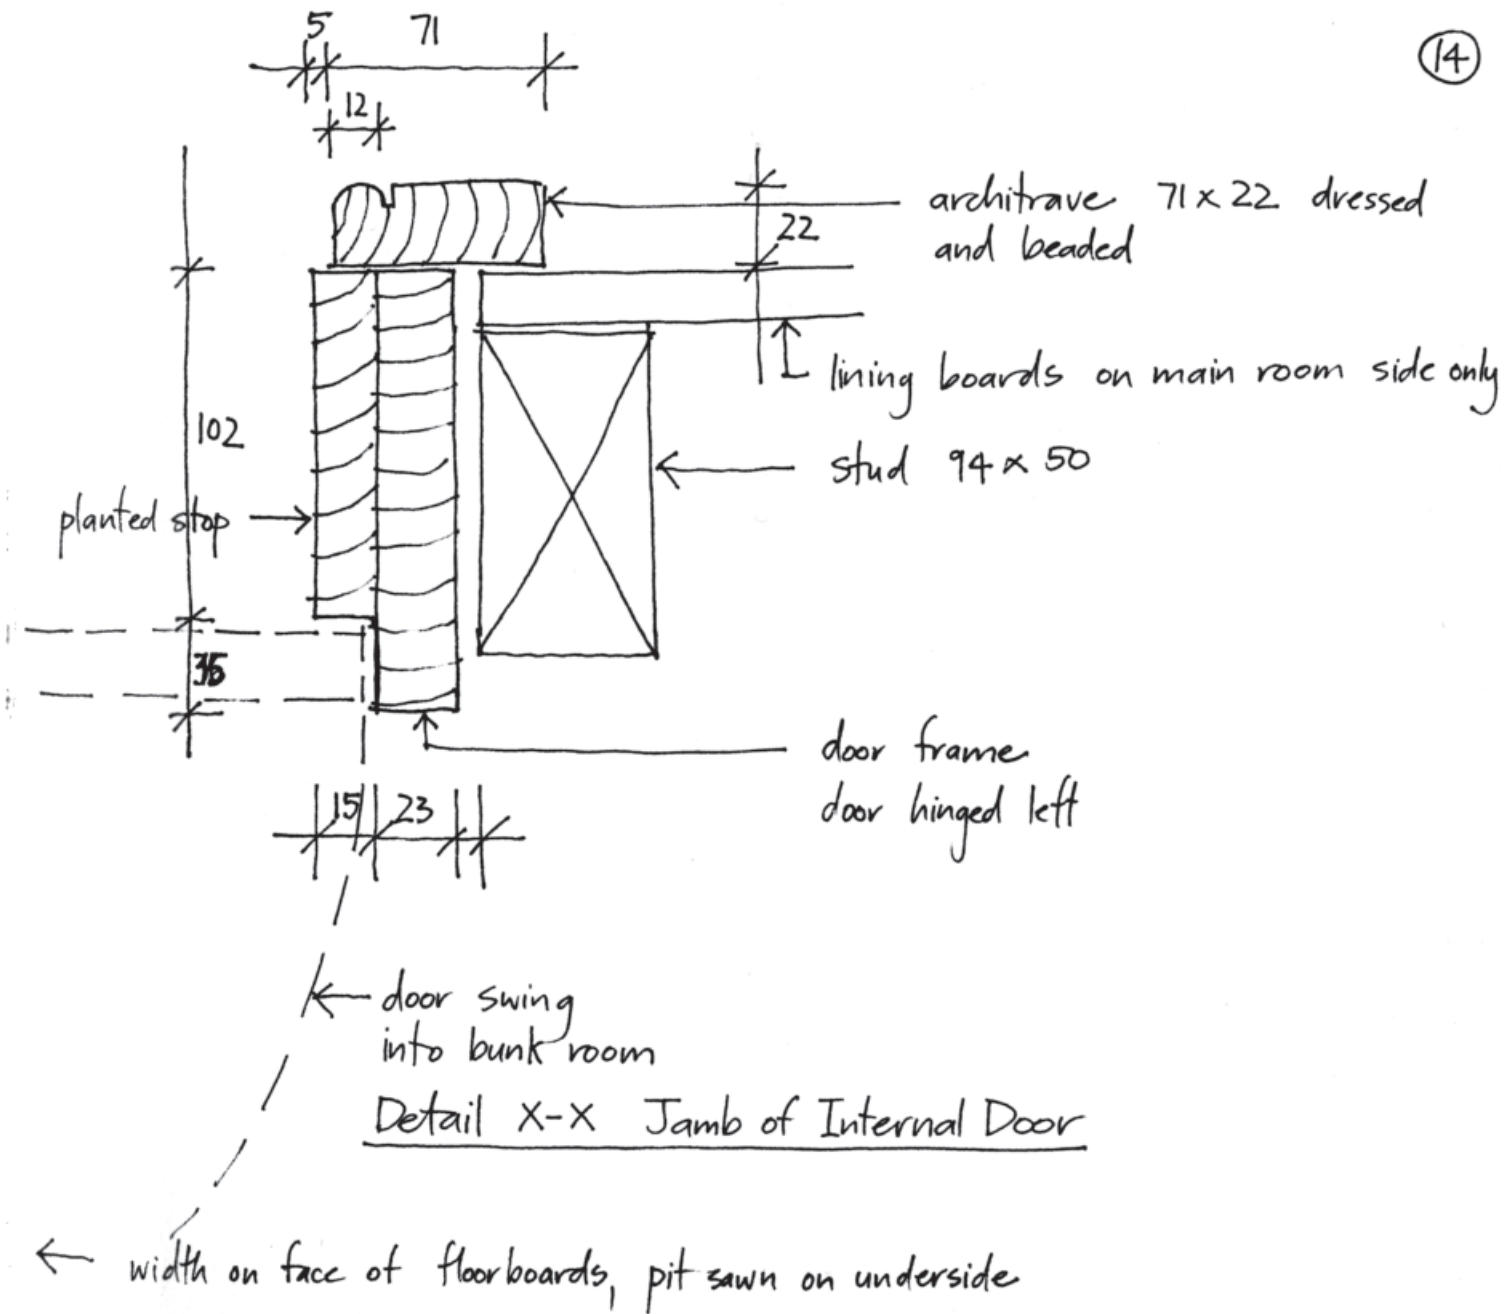 5 71
14
12
architrave 71 x 22 dressed
and beaded
22
lining boards on main room side only
102
stud 94 x 50
planted stop
door frame
door hinged left
15 23
door swing
into bunk room
Detail X-X Jamb of Internal Door
← width on face of floorboards, pit sawn on underside